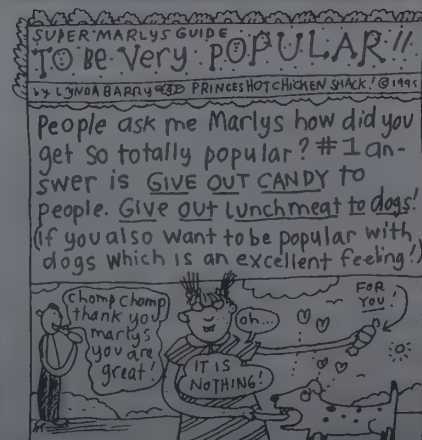 SUPER MARLYS GUIDE
TO BE Very POPULAR!!
by LYNDA BARRY AND PRINCES HOT CHICKEN SHACK! © 1995
People ask me Marlys how did you
get so totally popular? #1 an-
swer is GIVE OUT CANDY to
people. Give out lunchmeat to dogs!
(If you also want to be popular with
dogs which is an excellent feeling!)
Chomp Chomp
thank you
marlys
you are
great!
oh...
IT IS
NOTHING!
FOR
YOU!